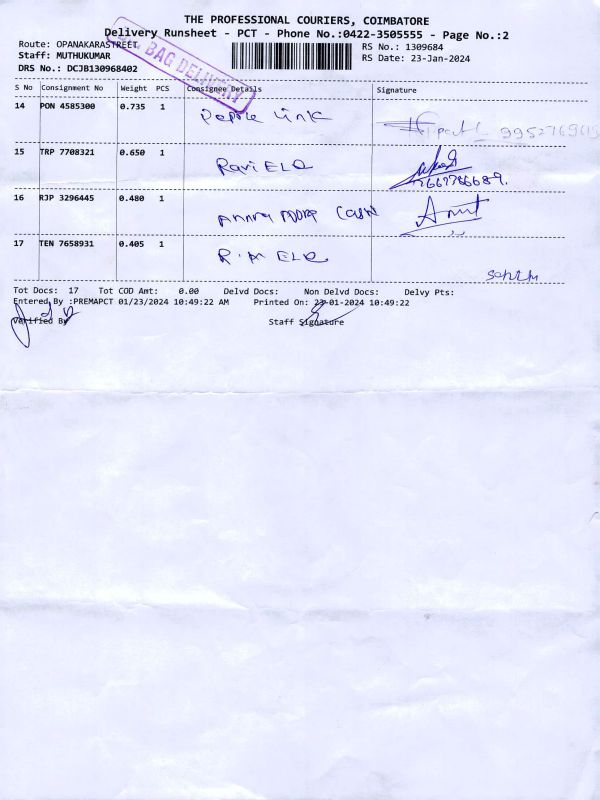 THE PROFESSIONAL COURIERS, COIMBATORE
Delivery Runsheet - PCT - Phone No.:0422-3505555 - Page No.:2
Route: OPANAKARASTREET
RS No.: 1309684
Staff: MUTHUKUMAR
RS Date: 23-Jan-2024
DRS No.: DCJB130968402
BAG DELIVERY
S No Consignment No Weight PCS Consignee Details Signature
14 PON 4585300 0.735 1 People Link
15 TRP 7708321 0.650 1 Ravi ELE 7667786689.
16 RJP 3296445 0.480 1
17 TEN 7658931 0.405 1 ELE
Tot Docs: 17 Tot COD Amt: 0.00 Delvd Docs: Non Delvd Docs: Delvy Pts:
Entered By :PREMAPCT 01/23/2024 10:49:22 AM Printed On: 23-01-2024 10:49:22
Verified By Staff Signature